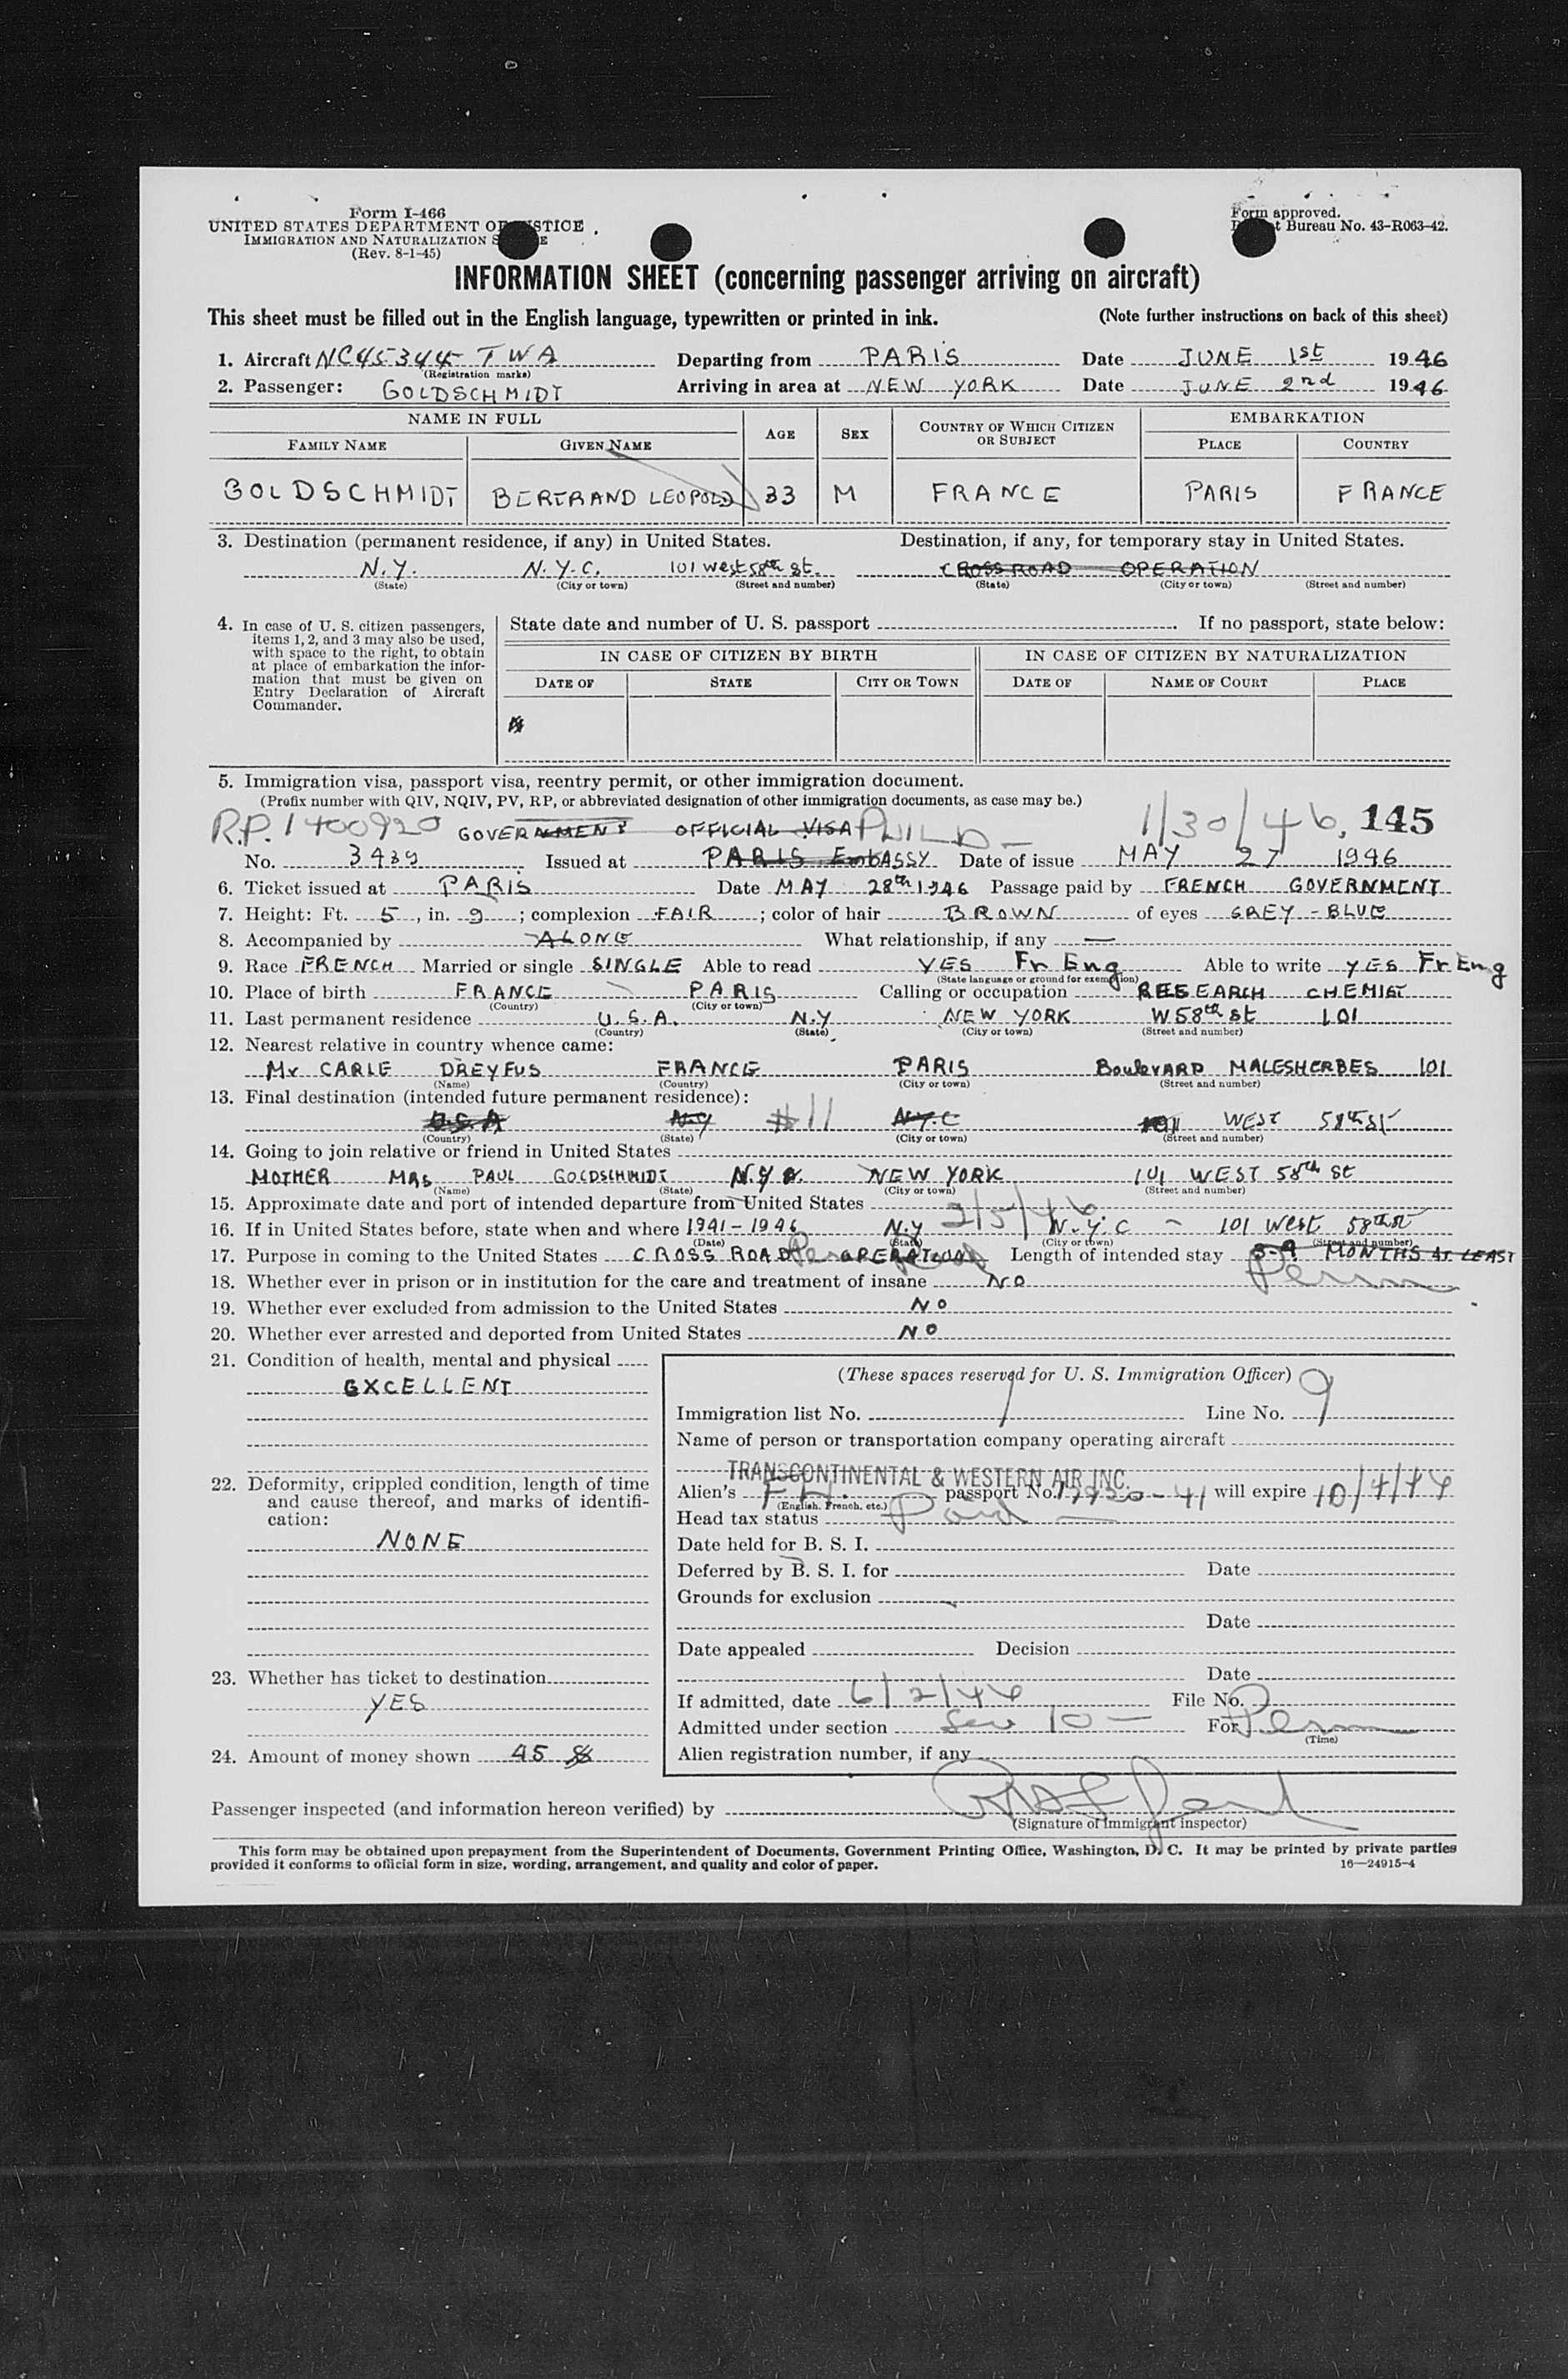 Form I-466
UNITED STATES DEPARTMENT OF JUSTICE
IMMIGRATION AND NATURALIZATION S E
(Rev. 8-1-45)
Form approved.
t Bureau No. 43-R063-42.
INFORMATION SHEET (concerning passenger arriving on aircraft)
This sheet must be filled out in the English language, typewritten or printed in ink. (Note further instructions on back of this sheet)
1. Aircraft NC45344 - TWA Departing from PARIS Date JUNE 1st 1946
(Registration marks)
2. Passenger: GOLDSCHMIDT Arriving in area at NEW YORK Date JUNE 2nd 1946
NAME IN FULL AGE SEX COUNTRY OF WHICH CITIZEN OR SUBJECT EMBARKATION
FAMILY NAME GIVEN NAME PLACE COUNTRY
GOLDSCHMIDT BERTRAND LEOPOLD 33 M FRANCE PARIS FRANCE
3. Destination (permanent residence, if any) in United States. Destination, if any, for temporary stay in United States.
N.Y. N.Y.C. 101 West 58th St. CROSSROAD OPERATION
(State) (City or town) (Street and number) (State) (City or town) (Street and number)
4. In case of U. S. citizen passengers, items 1, 2, and 3 may also be used, with space to the right, to obtain at place of embarkation the information that must be given on Entry Declaration of Aircraft Commander.
State date and number of U. S. passport If no passport, state below:
IN CASE OF CITIZEN BY BIRTH IN CASE OF CITIZEN BY NATURALIZATION
DATE OF STATE CITY OR TOWN DATE OF NAME OF COURT PLACE
5. Immigration visa, passport visa, reentry permit, or other immigration document.
(Prefix number with QIV, NQIV, PV, RP, or abbreviated designation of other immigration documents, as case may be.)
R.P. 1400920 GOVERNMENT OFFICIAL VISA PHILD - 1/30/46, 145
No. 3439 Issued at PARIS EmbASSY Date of issue MAY 27 1946
6. Ticket issued at PARIS Date MAY 28th 1946 Passage paid by FRENCH GOVERNMENT
7. Height: Ft. 5, in. 9; complexion FAIR; color of hair BROWN of eyes GREY - BLUE
8. Accompanied by ALONE What relationship, if any —
9. Race FRENCH Married or single SINGLE Able to read YES Fr Eng Able to write YES Fr Eng
(State language or ground for exemption)
10. Place of birth FRANCE PARIS Calling or occupation RESEARCH CHEMIST
(Country) (City or town)
11. Last permanent residence U.S.A. N.Y NEW YORK W 58th St 101
(Country) (State) (City or town) (Street and number)
12. Nearest relative in country whence came:
Mr CARLE DREYFUS FRANCE PARIS BoulevARD MALESHERBES 101
(Name) (Country) (City or town) (Street and number)
13. Final destination (intended future permanent residence):
U.S.A N.Y #11 N.Y.C 101 WEST 58th St
(Country) (State) (City or town) (Street and number)
14. Going to join relative or friend in United States
MOTHER MRS PAUL GOLDSCHMIDT N.Y. NEW YORK 101 WEST 58th St
(Name) (State) (City or town) (Street and number)
15. Approximate date and port of intended departure from United States
16. If in United States before, state when and where 1941 - 1946 N.Y 2/5/46 N.Y.C - 101 West 58th St
(Date) (State) (City or town) (Street and number)
17. Purpose in coming to the United States CROSS ROAD OPERATION Length of intended stay 3-4 MONTHS At LEAST
Perm
18. Whether ever in prison or in institution for the care and treatment of insane NO
19. Whether ever excluded from admission to the United States NO
20. Whether ever arrested and deported from United States NO
21. Condition of health, mental and physical
EXCELLENT
22. Deformity, crippled condition, length of time and cause thereof, and marks of identification:
NONE
23. Whether has ticket to destination
YES
24. Amount of money shown 45 $
(These spaces reserved for U. S. Immigration Officer)
Immigration list No. 1 Line No. 9
Name of person or transportation company operating aircraft
TRANSCONTINENTAL & WESTERN AIR INC.
Alien's passport No. will expire 10/4/46
(English, French, etc.)
Head tax status Paid —
Date held for B. S. I.
Deferred by B. S. I. for Date
Grounds for exclusion
Date
Date appealed Decision
Date
If admitted, date 6/2/46 File No.
Admitted under section Sec 10 — For Perm
(Time)
Alien registration number, if any
Passenger inspected (and information hereon verified) by
(Signature of immigrant inspector)
This form may be obtained upon prepayment from the Superintendent of Documents, Government Printing Office, Washington, D. C. It may be printed by private parties
provided it conforms to official form in size, wording, arrangement, and quality and color of paper. 16—24915-4